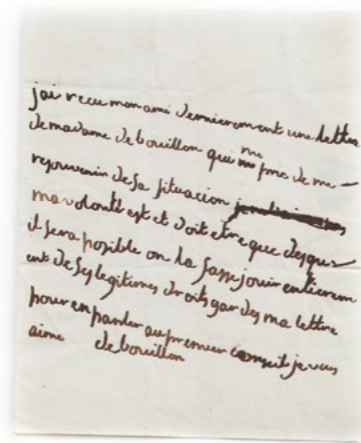 jai recu mon ami dernierement une lettre
de madame de bouillon qui me prie de me
resouvenir de sa situacion
ma volonté est et doit etre que desque
il sera posible on la fasse jouir entierem
ent de ses legitimes droits gardes ma lettre
pour en parler au premier conseil je vous
aime de bouillon